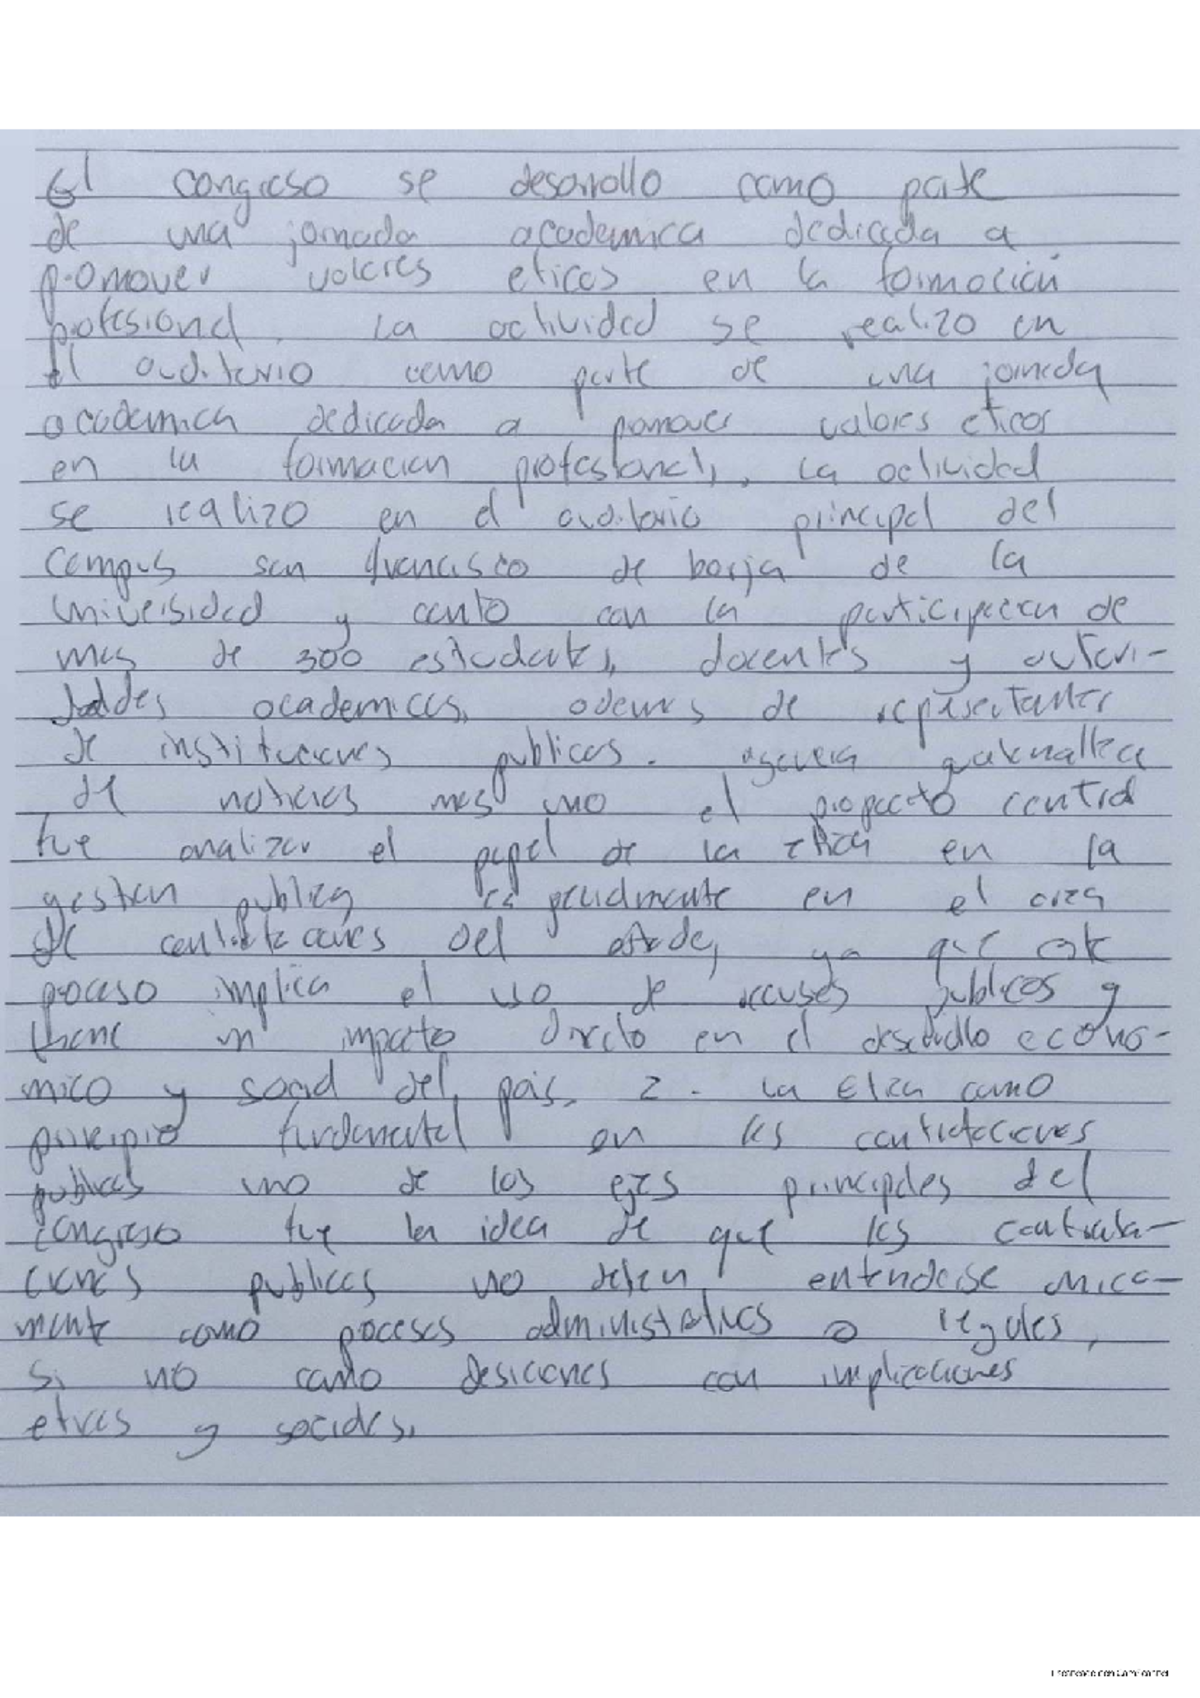 El congreso se desarrollo como parte
de una jornada academica dedicada a
promover valores eticos en la formación
profesional. La actividad se realizo en
el auditorio como parte de una jornada
academica dedicada a promover valores eticos
en la formacion profesional, La actividad
se realizo en el auditorio principal del
Campus san francisco de borja de la
Universidad y conto con la participacion de
mas de 300 estudiantes, docentes y autori-
dades academicas, ademas de representantes
de instituciones publicas. agencia guatemalteca
de noticias mas uno el proposito central
fue analizar el papel de la etica en la
gestion publica especialmente en el area
de contrataciones del estado, ya que este
proceso implica el uso de recursos publicos y
tiene un impacto directo en el desarrollo econo-
mico y social del pais. 2 - La Etica como
principio fundamental en las contrataciones
publicas uno de los ejes principales del
congreso fue la idea de que las contrata-
ciones publicas no deben entenderse unica-
mente como procesos administrativos o legales,
si no como desiciones con implicaciones
eticas y sociales.